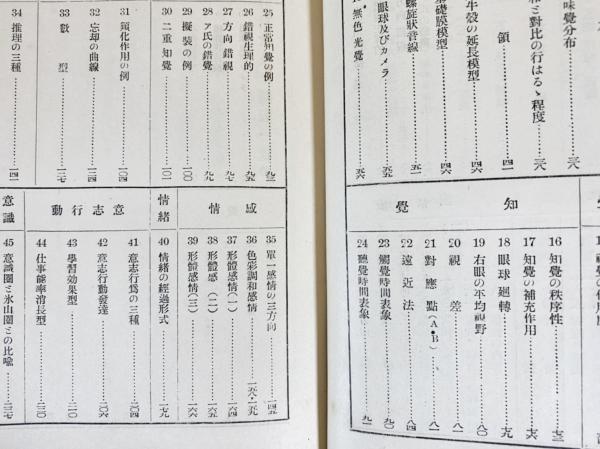 味覺分布……三八
と對比の行はるゝ程度……三八
領……四一
牛殼の延長模型……四六
基礎膜模型……四六
螺旋狀音線……五一
眼球及びカメラ
無色光覺……五六
知覺
16 知覺の秩序性……七三
17 知覺の補充作用……七六
18 眼球廻轉……七九
19 右眼の平均視野……八〇
20 視差……八一
21 對應點(A・B)……八一
22 遠近法……八四
23 觸覺時間表象……九〇
24 聽覺時間表象……九一
25 正常知覺の例……九三
26 錯視生理的……九五
27 方向錯視……九七
28 ァ氏の錯覺……九九
29 擬裝の例……一〇〇
30 二重知覺……一〇一
31 類化作用の例……一〇四
32 忘却の曲線……一二四
33 數型……一二七
34 推理の三種……一四一
感情
35 單一感情の三方向……一四五
36 色彩調和感情……一五八・一五九
37 形體感情(一)……一六四
38 形體感(二)……一六五
39 形體感情(三)……一六六
情緒
40 情緒の經過形式……一七九
意志行動
41 意志行爲の三種……二〇四
42 意志行動發達……二〇六
43 學習效果型……二二〇
44 仕事能率消長型……二三〇
意識
45 意識圈と氷山圈との比喩……二三七